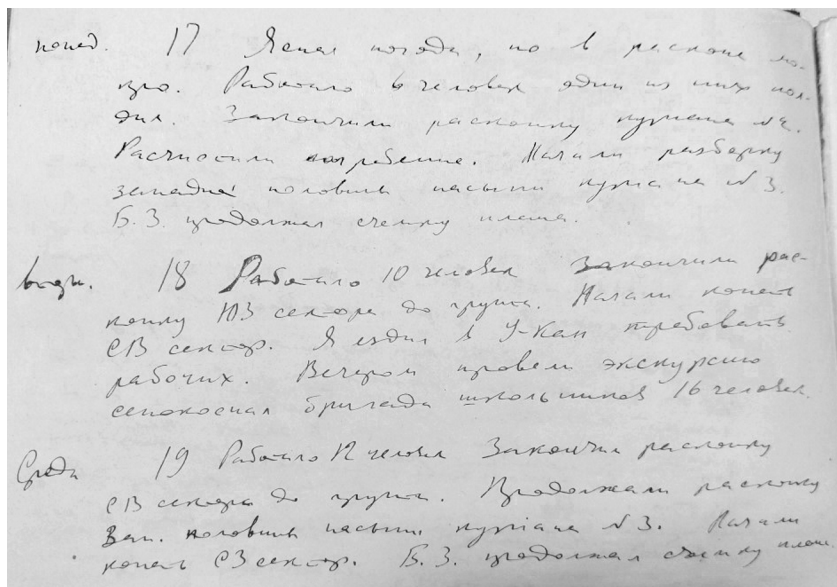 понед. 17 Ясная погода, но в раскопе мо-
кро. Работало 6 человек один из них
Закончили раскопку кургана №2.
Расчистили погребение. Начали разборку
западной половины насыпи кургана №3.
Б.З. продолжал съемку плана.
вторн. 18 Работало 10 человек Закончили рас-
копку ЮЗ сектора до грунта. Начали копать
СВ сектор. Я ездил в У-Кан требовать
рабочих. Вечером провели экскурсию
сенокосная бригада школьников 16 человек.
Среда 19 Работало 12 человек Закончил раскопку
СВ сектора до грунта. Продолжали раскопку
Зап. половины насыпи кургана №3. Начали
копать СЗ сектор. Б.З. продолжал съемку плана.